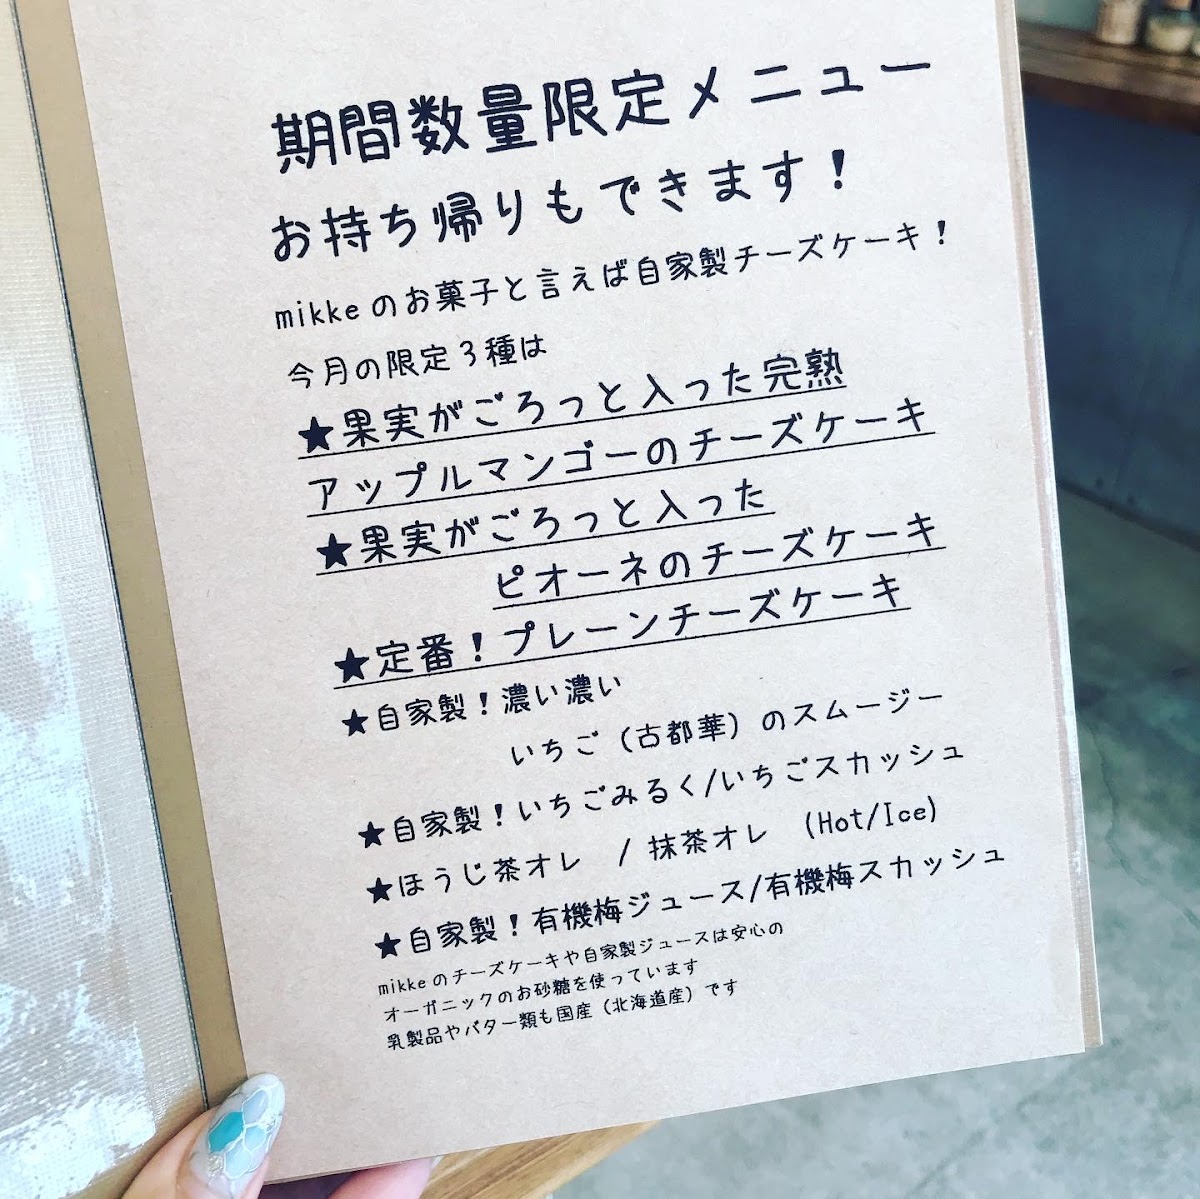 期間数量限定メニュー
お持ち帰りもできます！
mikkeのお菓子と言えば自家製チーズケーキ！
今月の限定３種は
★果実がごろっと入った完熟
アップルマンゴーのチーズケーキ
★果実がごろっと入った
ピオーネのチーズケーキ
★定番！プレーンチーズケーキ
★自家製！濃い濃い
いちご（古都華）のスムージー
★自家製！いちごみるく/いちごスカッシュ
★ほうじ茶オレ / 抹茶オレ (Hot/Ice)
★自家製！有機梅ジュース/有機梅スカッシュ
mikkeのチーズケーキや自家製ジュースは安心の
オーガニックのお砂糖を使っています
乳製品やバター類も国産（北海道産）です